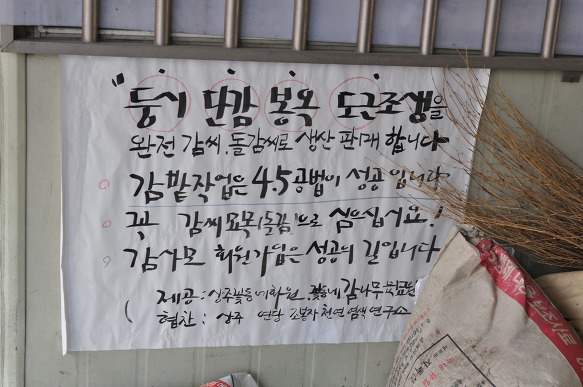 "둥시 단감 봉옥 도근조생을
완전 감씨.돌감씨로 생산 판매 합니다
감밭작업은 4.5공법이 성공 입니다
꼭 감씨묘목(돌감)으로 심으십시요!
감사모 회원가입은 성공의 길입니다
제공: 상주꽃동네화원. 꽃동네 감나무
협찬: 상주 연당 조봉자 천연 염색 연구소